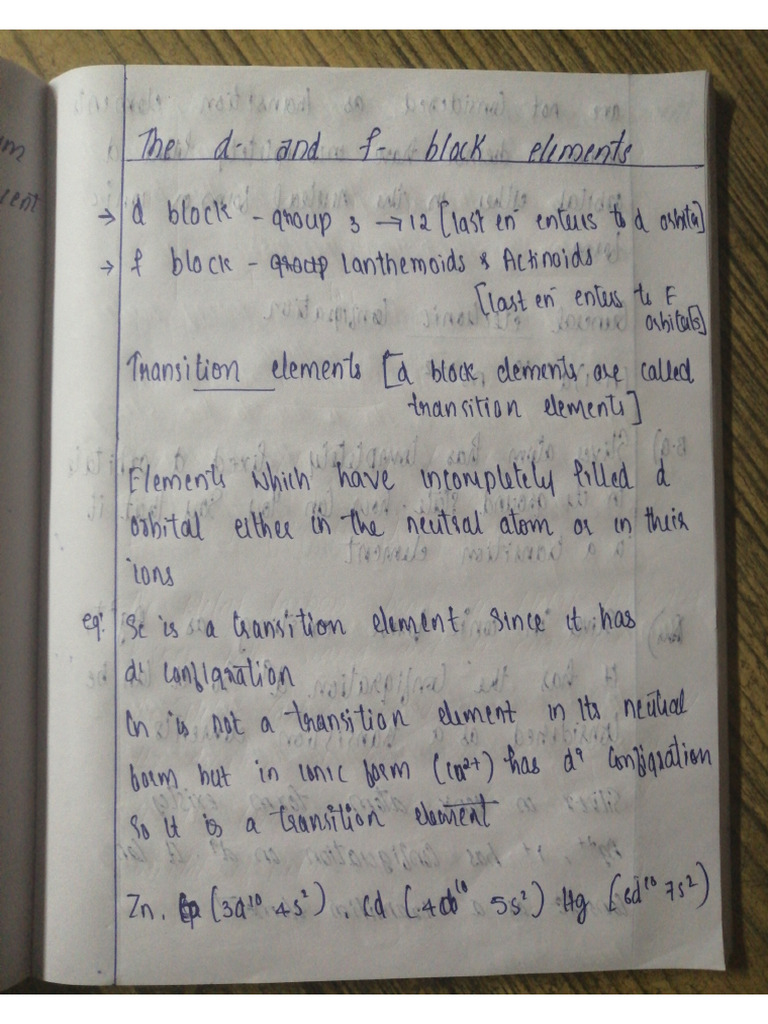 The d- and f- block elements
→ d block - group 3 → 12 [last en⁻ enters to d orbital]
→ f block - group Lanthenoids & Actinoids
[last en⁻ enters to F
orbitals]
Transition elements [d block elements are called
transition elements]
Elements which have incompletely filled d
orbital either in the neutral atom or in their
ions
eg: Sc is a transition element since it has
d¹ configration
Cn is not a transition element in its neutral
form but in ionic form (Cu²⁺) has d⁹ configration
So it is a transition element
Zn, (3d¹⁰ 4s²), Cd (4d¹⁰ 5s²) Hg (6d¹⁰ 7s²)